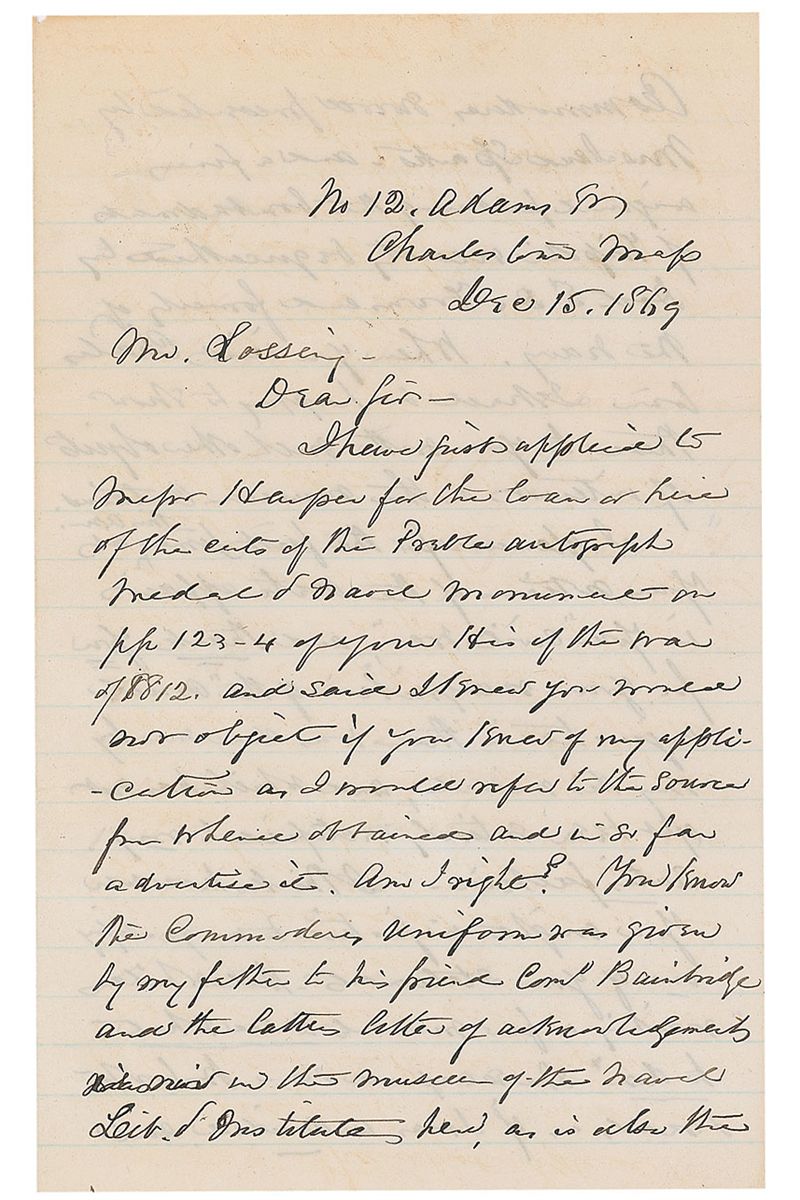 No 12. Adams St
Charlestown Mass
Dec 15. 1869
Mr. Lossing -
Dear Sir -
I have just applied to
Messr Harper for the loan or hire
of the cuts of the Preble autograph
Medal & Naval Monument on
pp 123-4 of your His of the war
of 1812. and said I knew you would
not object if you knew of my appli-
-cation as I would refer to the source
from whence obtained and in so far
advertise it. Am I right? You know
the Commodores Uniform was given
by my father to his friend Comd Bainbridge
and the latters letter of acknowledgments
in the museum of the Naval
Lib. & Institute, here, as is also the